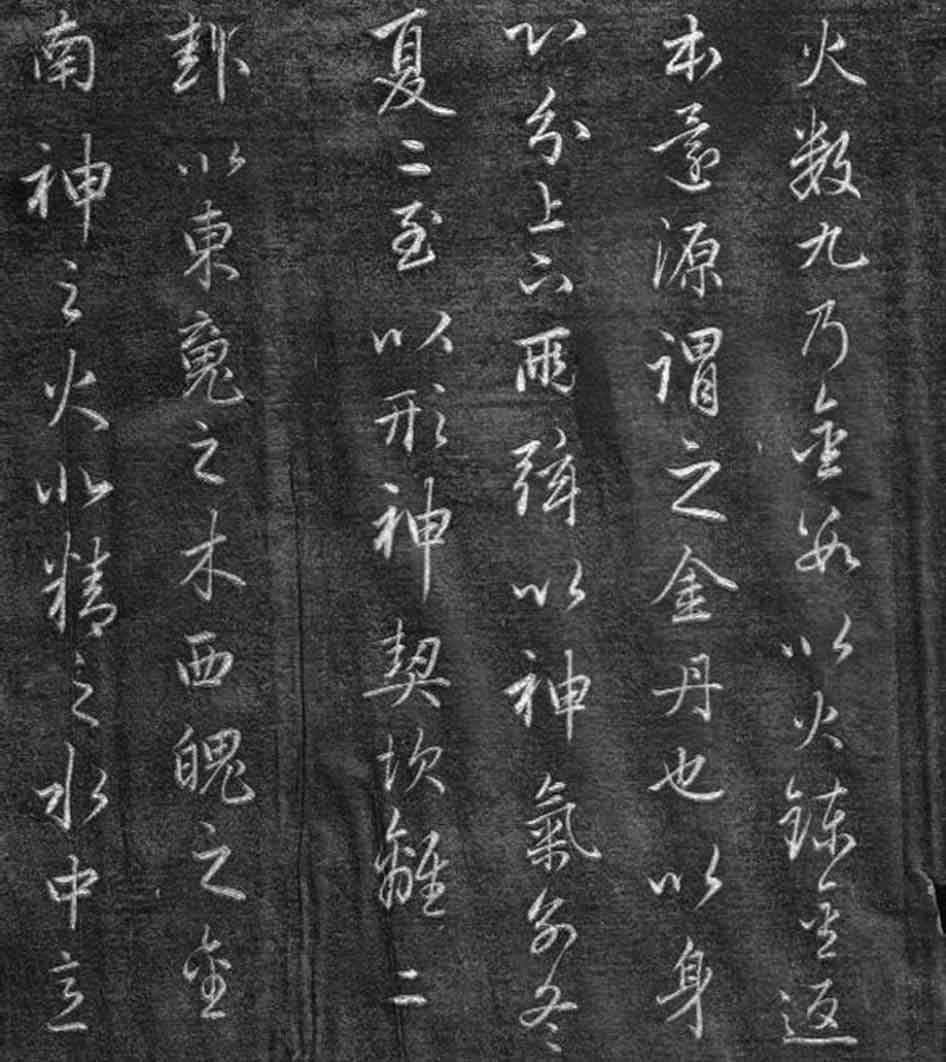 火数九乃金数以火鍊金返
本還源謂之金丹也以身
心分上下兩弦以神氣為冬
夏二至以形神契坎離二
卦以東魂之木西魄之金
南神之火北精之水中意